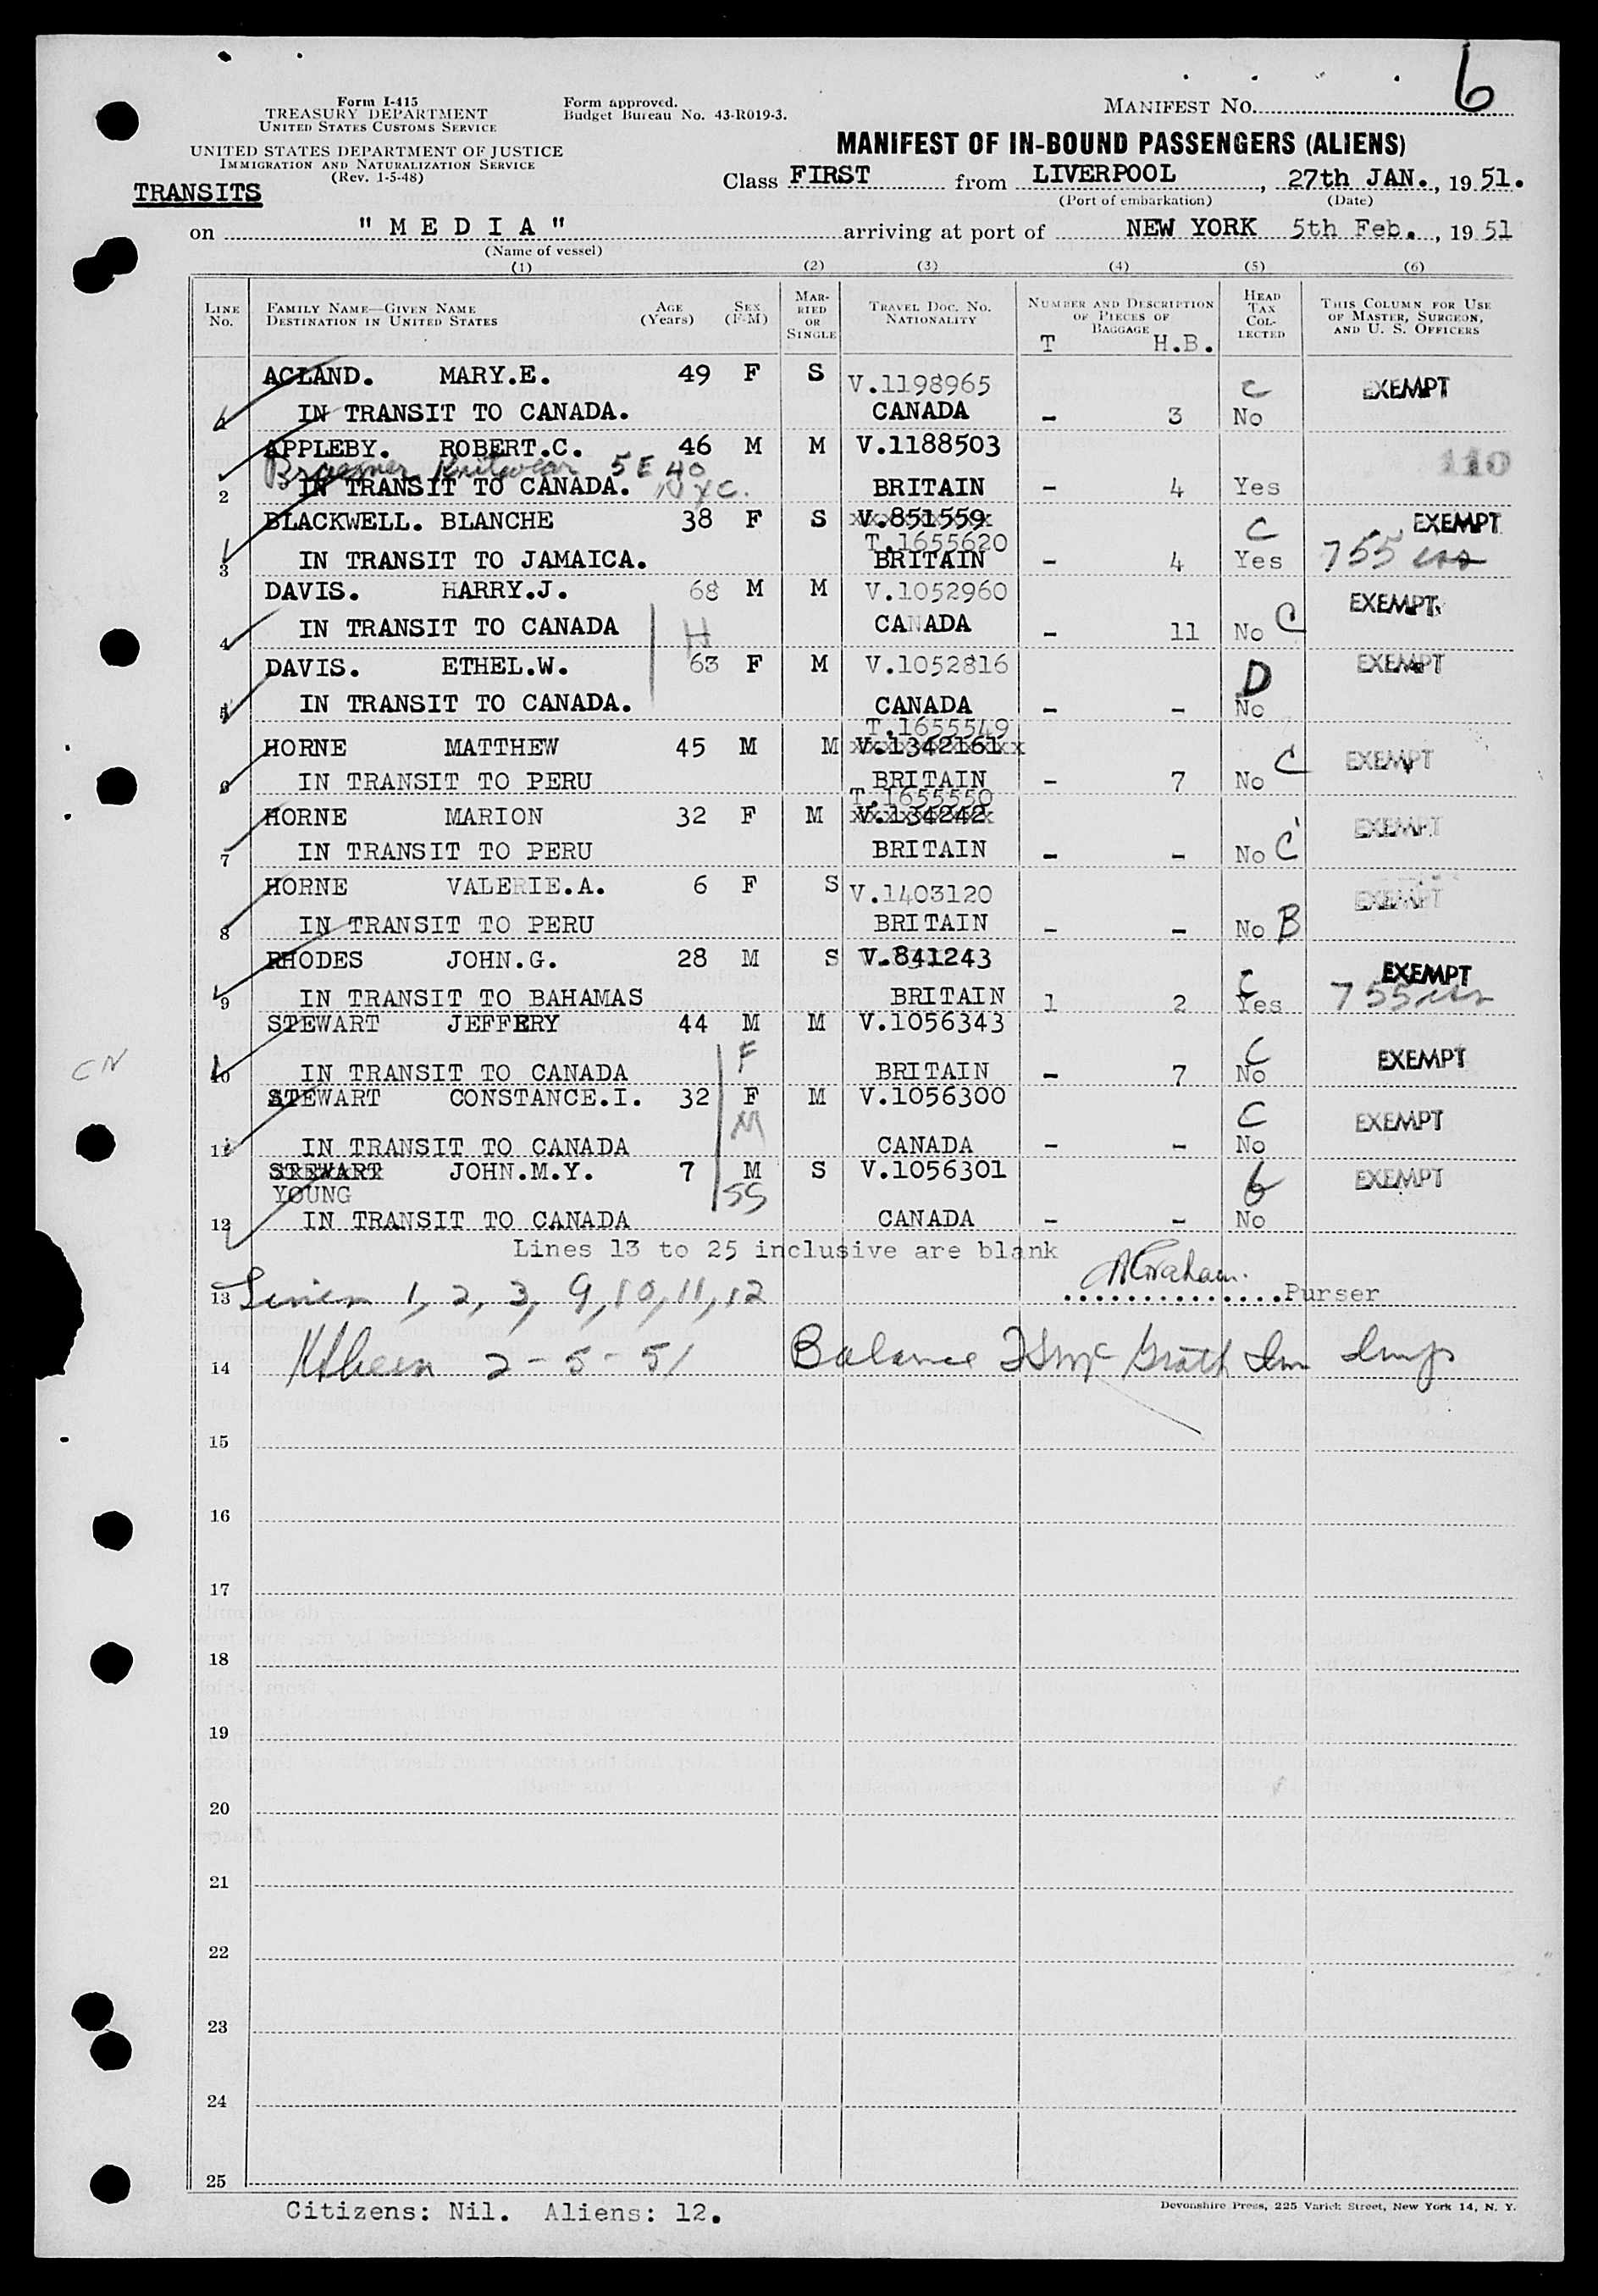 6
Form I-415
TREASURY DEPARTMENT
UNITED STATES CUSTOMS SERVICE
Form approved.
Budget Bureau No. 43-R019-3.
MANIFEST NO.
UNITED STATES DEPARTMENT OF JUSTICE
IMMIGRATION AND NATURALIZATION SERVICE
(Rev. 1-5-48)
MANIFEST OF IN-BOUND PASSENGERS (ALIENS)
TRANSITS
Class FIRST from LIVERPOOL, 27th JAN., 1951.
(Port of embarkation) (Date)
on "MEDIA" arriving at port of NEW YORK 5th Feb., 1951
(Name of vessel)
(1) (2) (3) (4) (5) (6)
LINE No. FAMILY NAME—GIVEN NAME DESTINATION IN UNITED STATES AGE (Years) SEX (F-M) MARRIED OR SINGLE TRAVEL DOC. NO. NATIONALITY NUMBER AND DESCRIPTION OF PIECES OF BAGGAGE HEAD TAX COLLECTED THIS COLUMN FOR USE OF MASTER, SURGEON, AND U. S. OFFICERS
T H.B.
ACLAND. MARY.E. 49 F S V.1198965 C EXEMPT
1 IN TRANSIT TO CANADA. CANADA - 3 No
APPLEBY. ROBERT.C. 46 M M V.1188503 110
Braemar Knitwear 5 E 40 NYC.
2 IN TRANSIT TO CANADA. BRITAIN - 4 Yes
BLACKWELL. BLANCHE 38 F S V.851559 C EXEMPT
T.1655620
3 IN TRANSIT TO JAMAICA. BRITAIN - 4 Yes 755
DAVIS. HARRY.J. 68 M M V.1052960 EXEMPT
4 IN TRANSIT TO CANADA H CANADA - 11 No C
DAVIS. ETHEL.W. 63 F M V.1052816 D EXEMPT
5 IN TRANSIT TO CANADA. CANADA - - No
T.1655549
HORNE MATTHEW 45 M M V.1342161 EXEMPT
6 IN TRANSIT TO PERU BRITAIN - 7 No C
T.1655550
HORNE MARION 32 F M V.134242 EXEMPT
7 IN TRANSIT TO PERU BRITAIN - - No C
HORNE VALERIE.A. 6 F S V.1403120 EXEMPT
8 IN TRANSIT TO PERU BRITAIN - - No B
RHODES JOHN.G. 28 M S V.841243 C EXEMPT
9 IN TRANSIT TO BAHAMAS BRITAIN 1 2 Yes 755
STEWART JEFFERY 44 M M V.1056343
CN
10 IN TRANSIT TO CANADA F BRITAIN - 7 C No EXEMPT
STEWART CONSTANCE.I. 32 F M V.1056300 C EXEMPT
11 IN TRANSIT TO CANADA M CANADA - - No
STEWART JOHN.M.Y. 7 M S V.1056301 EXEMPT
YOUNG SS
12 IN TRANSIT TO CANADA CANADA - - No
Lines 13 to 25 inclusive are blank
13 Lines 1, 2, 3, 9, 10, 11, 12 Graham. Purser
14 2-5-51 Balance McGrath Imm Insp
15
16
17
18
19
20
21
22
23
24
25
Citizens: Nil. Aliens: 12.
Devonshire Press, 225 Varick Street, New York 14, N. Y.